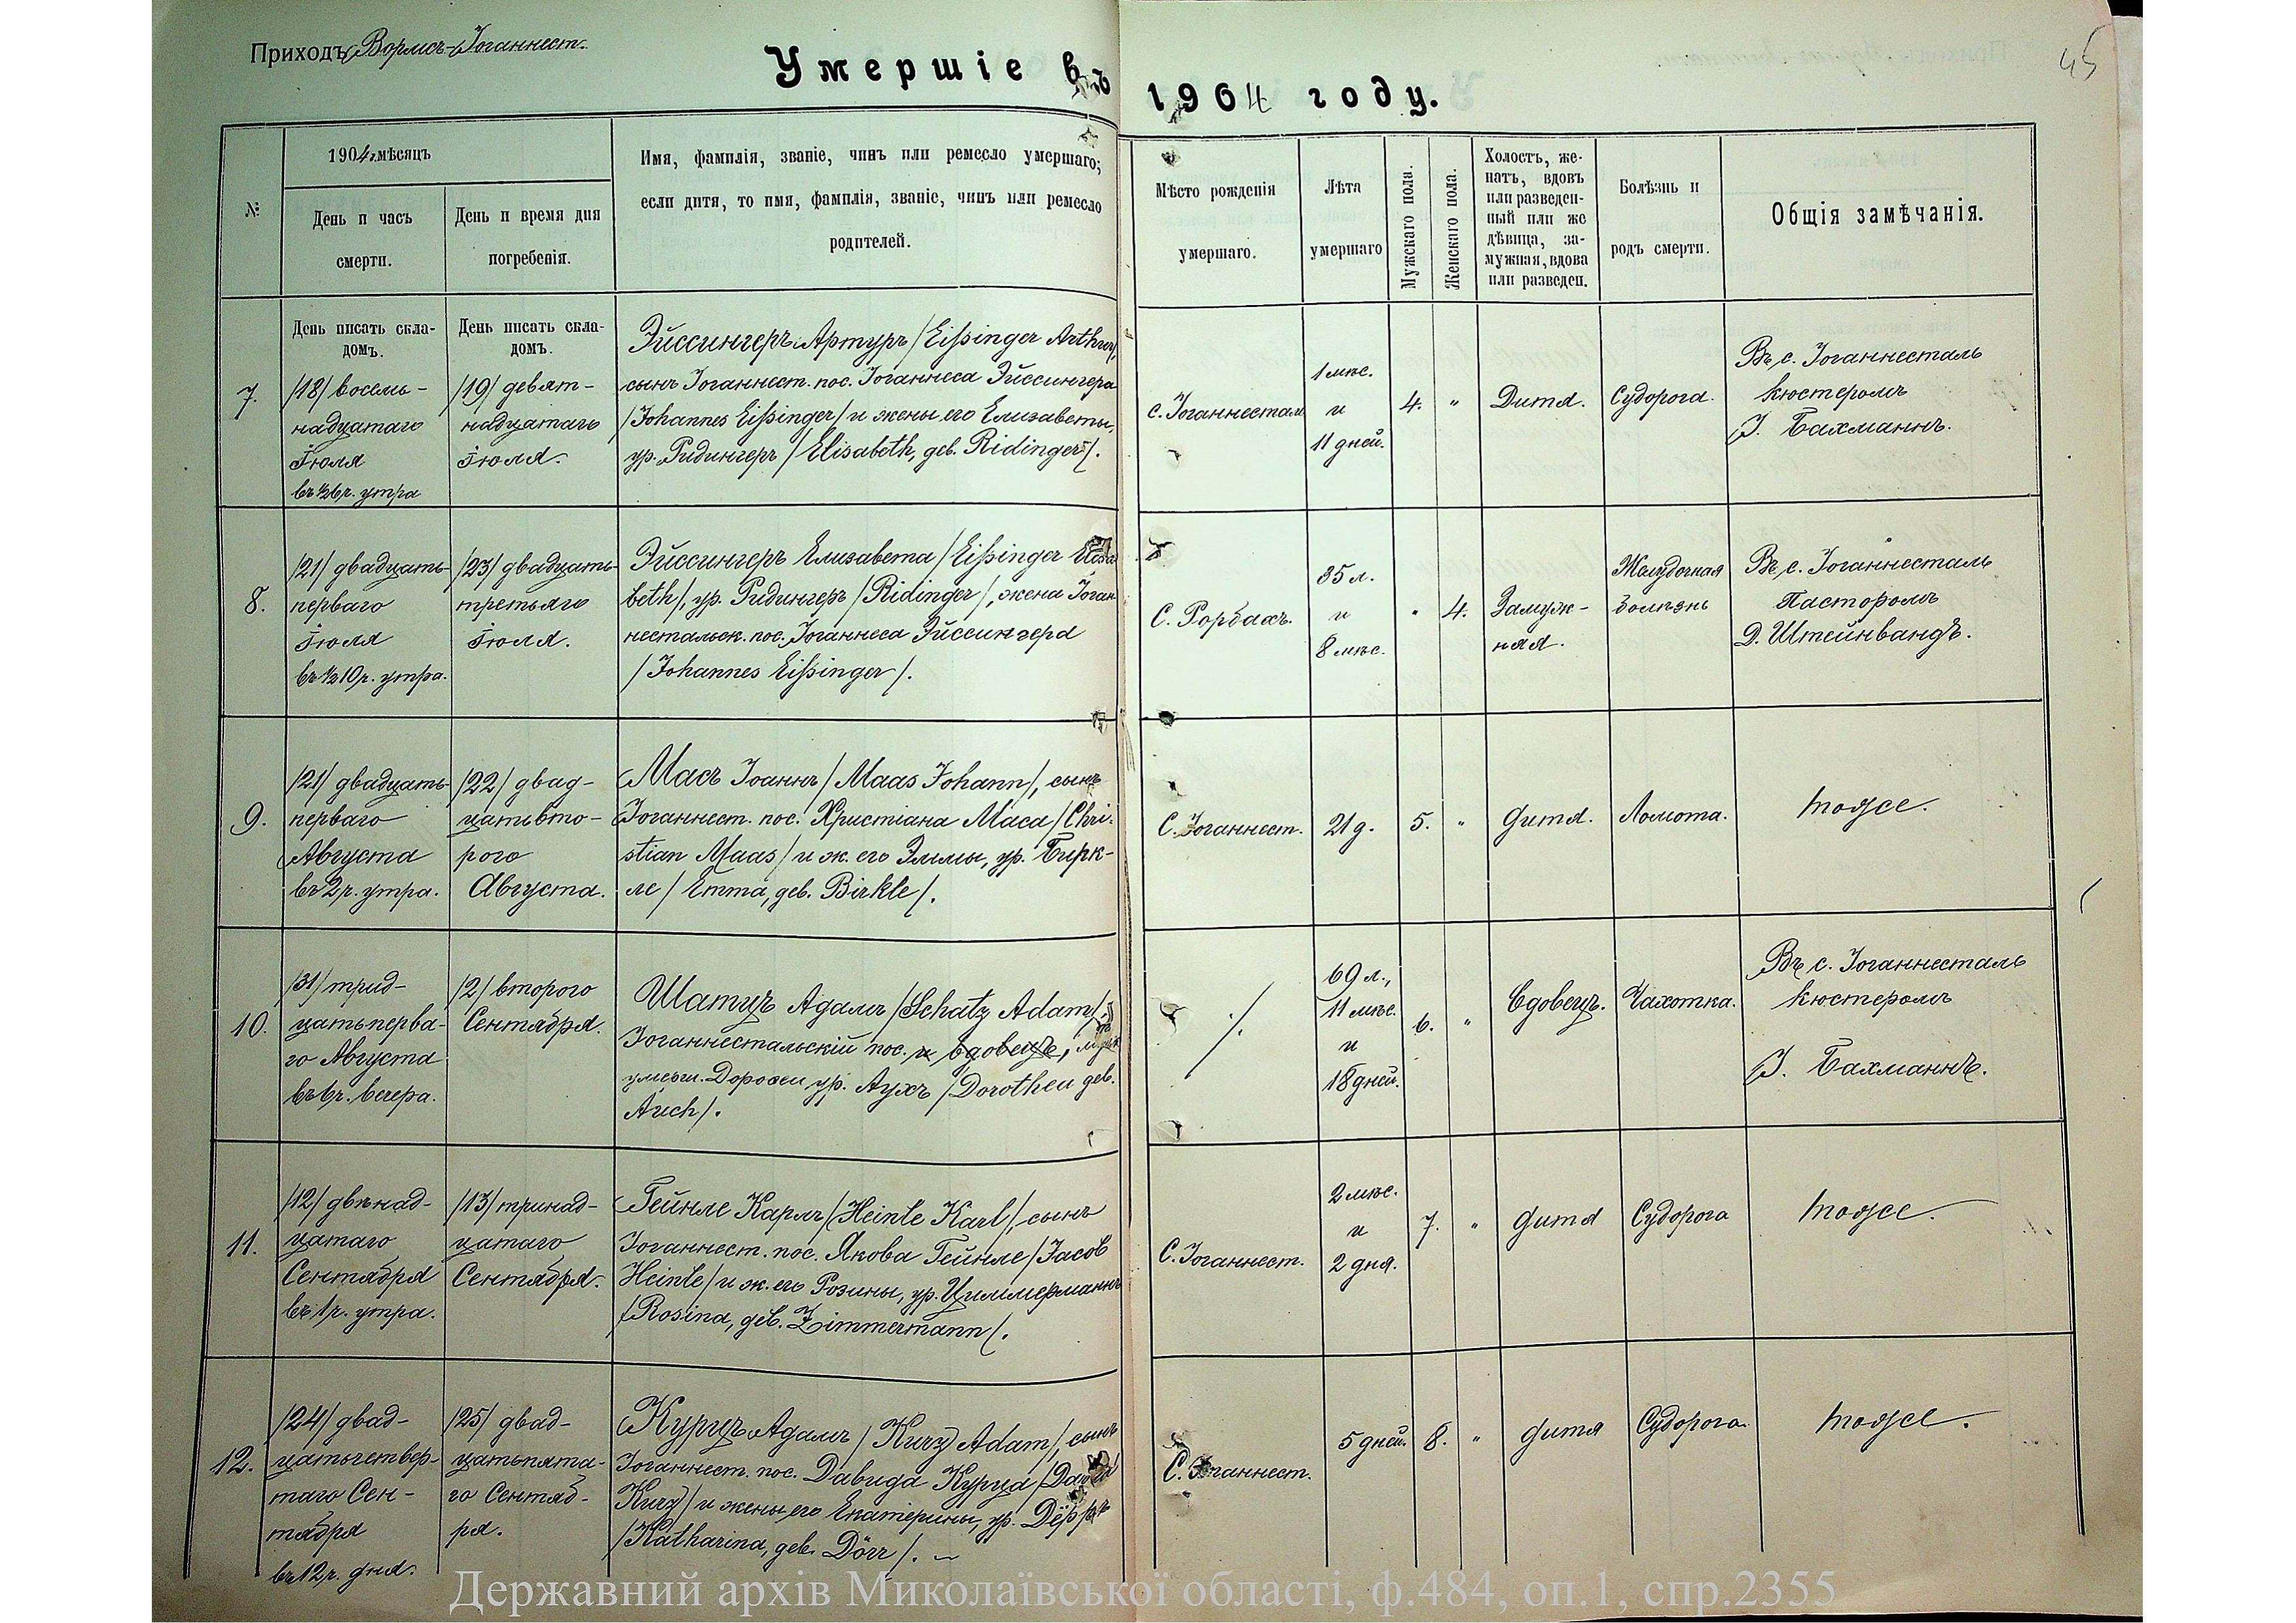 Приходъ Вормсъ-Іоганнест.
45
Умершіе въ 1904 году.
№
1904 г. мѣсяцъ
День и часъ
смерти.
День и время дня
погребенія.
Имя, фамилія, званіе, чинъ или ремесло умершаго;
если дитя, то имя, фамилія, званіе, чинъ или ремесло
родителей.
Мѣсто рожденія
умершаго.
Лѣта
умершаго
Мужскаго пола.
Женскаго пола.
Холостъ, же-
натъ, вдовъ
или разведен-
ный или же
дѣвица, за-
мужняя, вдова
или разведен.
Болѣзнь и
родъ смерти.
Общія замѣчанія.
День писать скла-
домъ.
День писать скла-
домъ.
7.
/18/ восемь-
надцатаго
Іюля
въ ½6 ч. утра
/19/ девят-
надцатаго
Іюля.
Эйссингеръ Артуръ /Eißinger Arthur/,
сынъ Іоганнест. пос. Іоганнеса Эйссингера
/Johannes Eißinger/ и жены его Елизаветы,
ур. Ридингеръ /Elisabeth, geb. Ridinger/.
с. Іоганнесталь
1 мѣс.
и
11 дней.
4.
"
Дитя.
Судорога.
Въ с. Іоганнесталь
кюстеромъ
І. Бахманнъ.
8.
/21/ двадцать
перваго
Іюля
въ ½10 ч. утра.
/23/ двадцать
третьяго
Іюля.
Эйссингеръ Елизавета /Eißinger Elisa
beth/, ур. Ридингеръ /Ridinger/, жена Іоган
нестальск. пос. Іоганнеса Эйссингера
/Johannes Eißinger/.
С. Рорбахъ.
35 л.
и
8 мѣс.
"
4.
Замуж-
няя.
Желудочная
болѣзнь
Въ с. Іоганнесталь
Пасторомъ
Д. Штейнвандъ.
9.
/21/ двадцать
перваго
Августа
въ 2 ч. утра.
/22/ двад-
цать вто-
рого
Августа.
Масъ Іоаннъ /Maas Johann/, сынъ
Іоганнест. пос. Христіана Маса /Chri-
stian Maas/ и ж. его Эммы, ур. Бирк-
ле /Emma, geb. Birkle/.
С. Іоганнест.
21 д.
5.
"
дитя.
Ломота.
тоже.
10.
/31/ трид-
цать перва-
го Августа
въ 6 ч. вечера.
/2/ второго
Сентября.
Шатцъ Адамъ /Schatz Adam/,
Іоганнестальскій пос. и вдовецъ, мужъ
умерш. Доротеи ур. Аухъ /Dorothea geb.
Auch/.
٪
69 л.,
11 мѣс.
и
18 дней.
6.
"
Вдовецъ.
Чахотка.
Въ с. Іоганнесталь
кюстеромъ
І. Бахманнъ.
11.
/12/ двѣнад-
цатаго
Сентября
въ 1 ч. утра.
/13/ тринад-
цатаго
Сентября.
Гейнле Карлъ /Heinle Karl/, сынъ
Іоганнест. пос. Якова Гейнле /Jacob
Heinle/ и ж. его Розины, ур. Циммерманнъ
/Rosina, geb. Zimmermann/.
С. Іоганнест.
2 мѣс.
и
2 дня.
7.
"
дитя
Судорога
тоже.
12.
/24/ двад-
цать четвер-
таго Сен-
тября
въ 12 ч. дня.
/25/ двад-
цать пята-
го Сентяб-
ря.
Курцъ Адамъ /Kurz Adam/, сынъ
Іоганнест. пос. Давида Курца /David
Kurz/ и жены его Екатерины, ур. Дёрръ
/Katharina, geb. Dörr/. –
С. Іоганнест.
5 дней.
8.
"
дитя
Судорога.
тоже.
Державний архів Миколаївської області, ф.484, оп.1, спр.2355